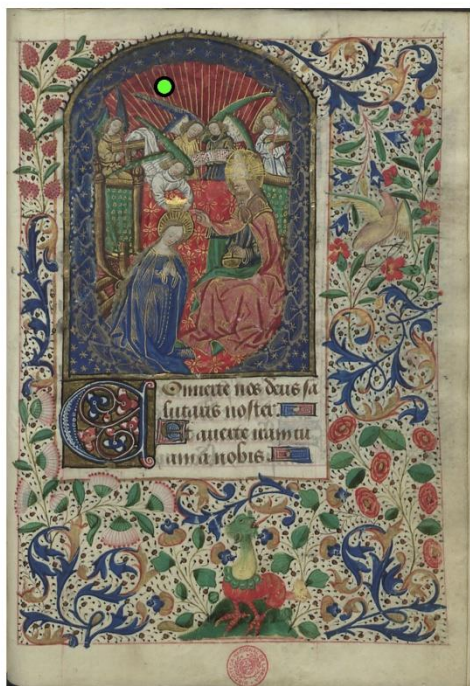 Onuerte nos deus sa
lutaris noster.
Et auerte iram tu
am a nobis.